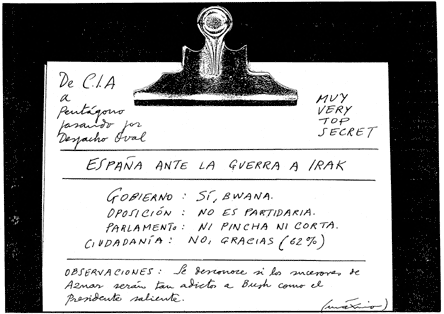 De C.I.A
a
Pentágono
pasando por
Despacho Oval
MUY
VERY
TOP
SECRET
ESPAÑA ANTE LA GUERRA A IRAK
GOBIERNO : SÍ, BWANA.
OPOSICIÓN : NO ES PARTIDARIA.
PARLAMENTO : NI PINCHA NI CORTA.
CIUDADANÍA : NO, GRACIAS (62%)
OBSERVACIONES : Se desconoce si los sucesores de
Aznar serán tan adictos a Bush como el
Presidente saliente.
(máximo)